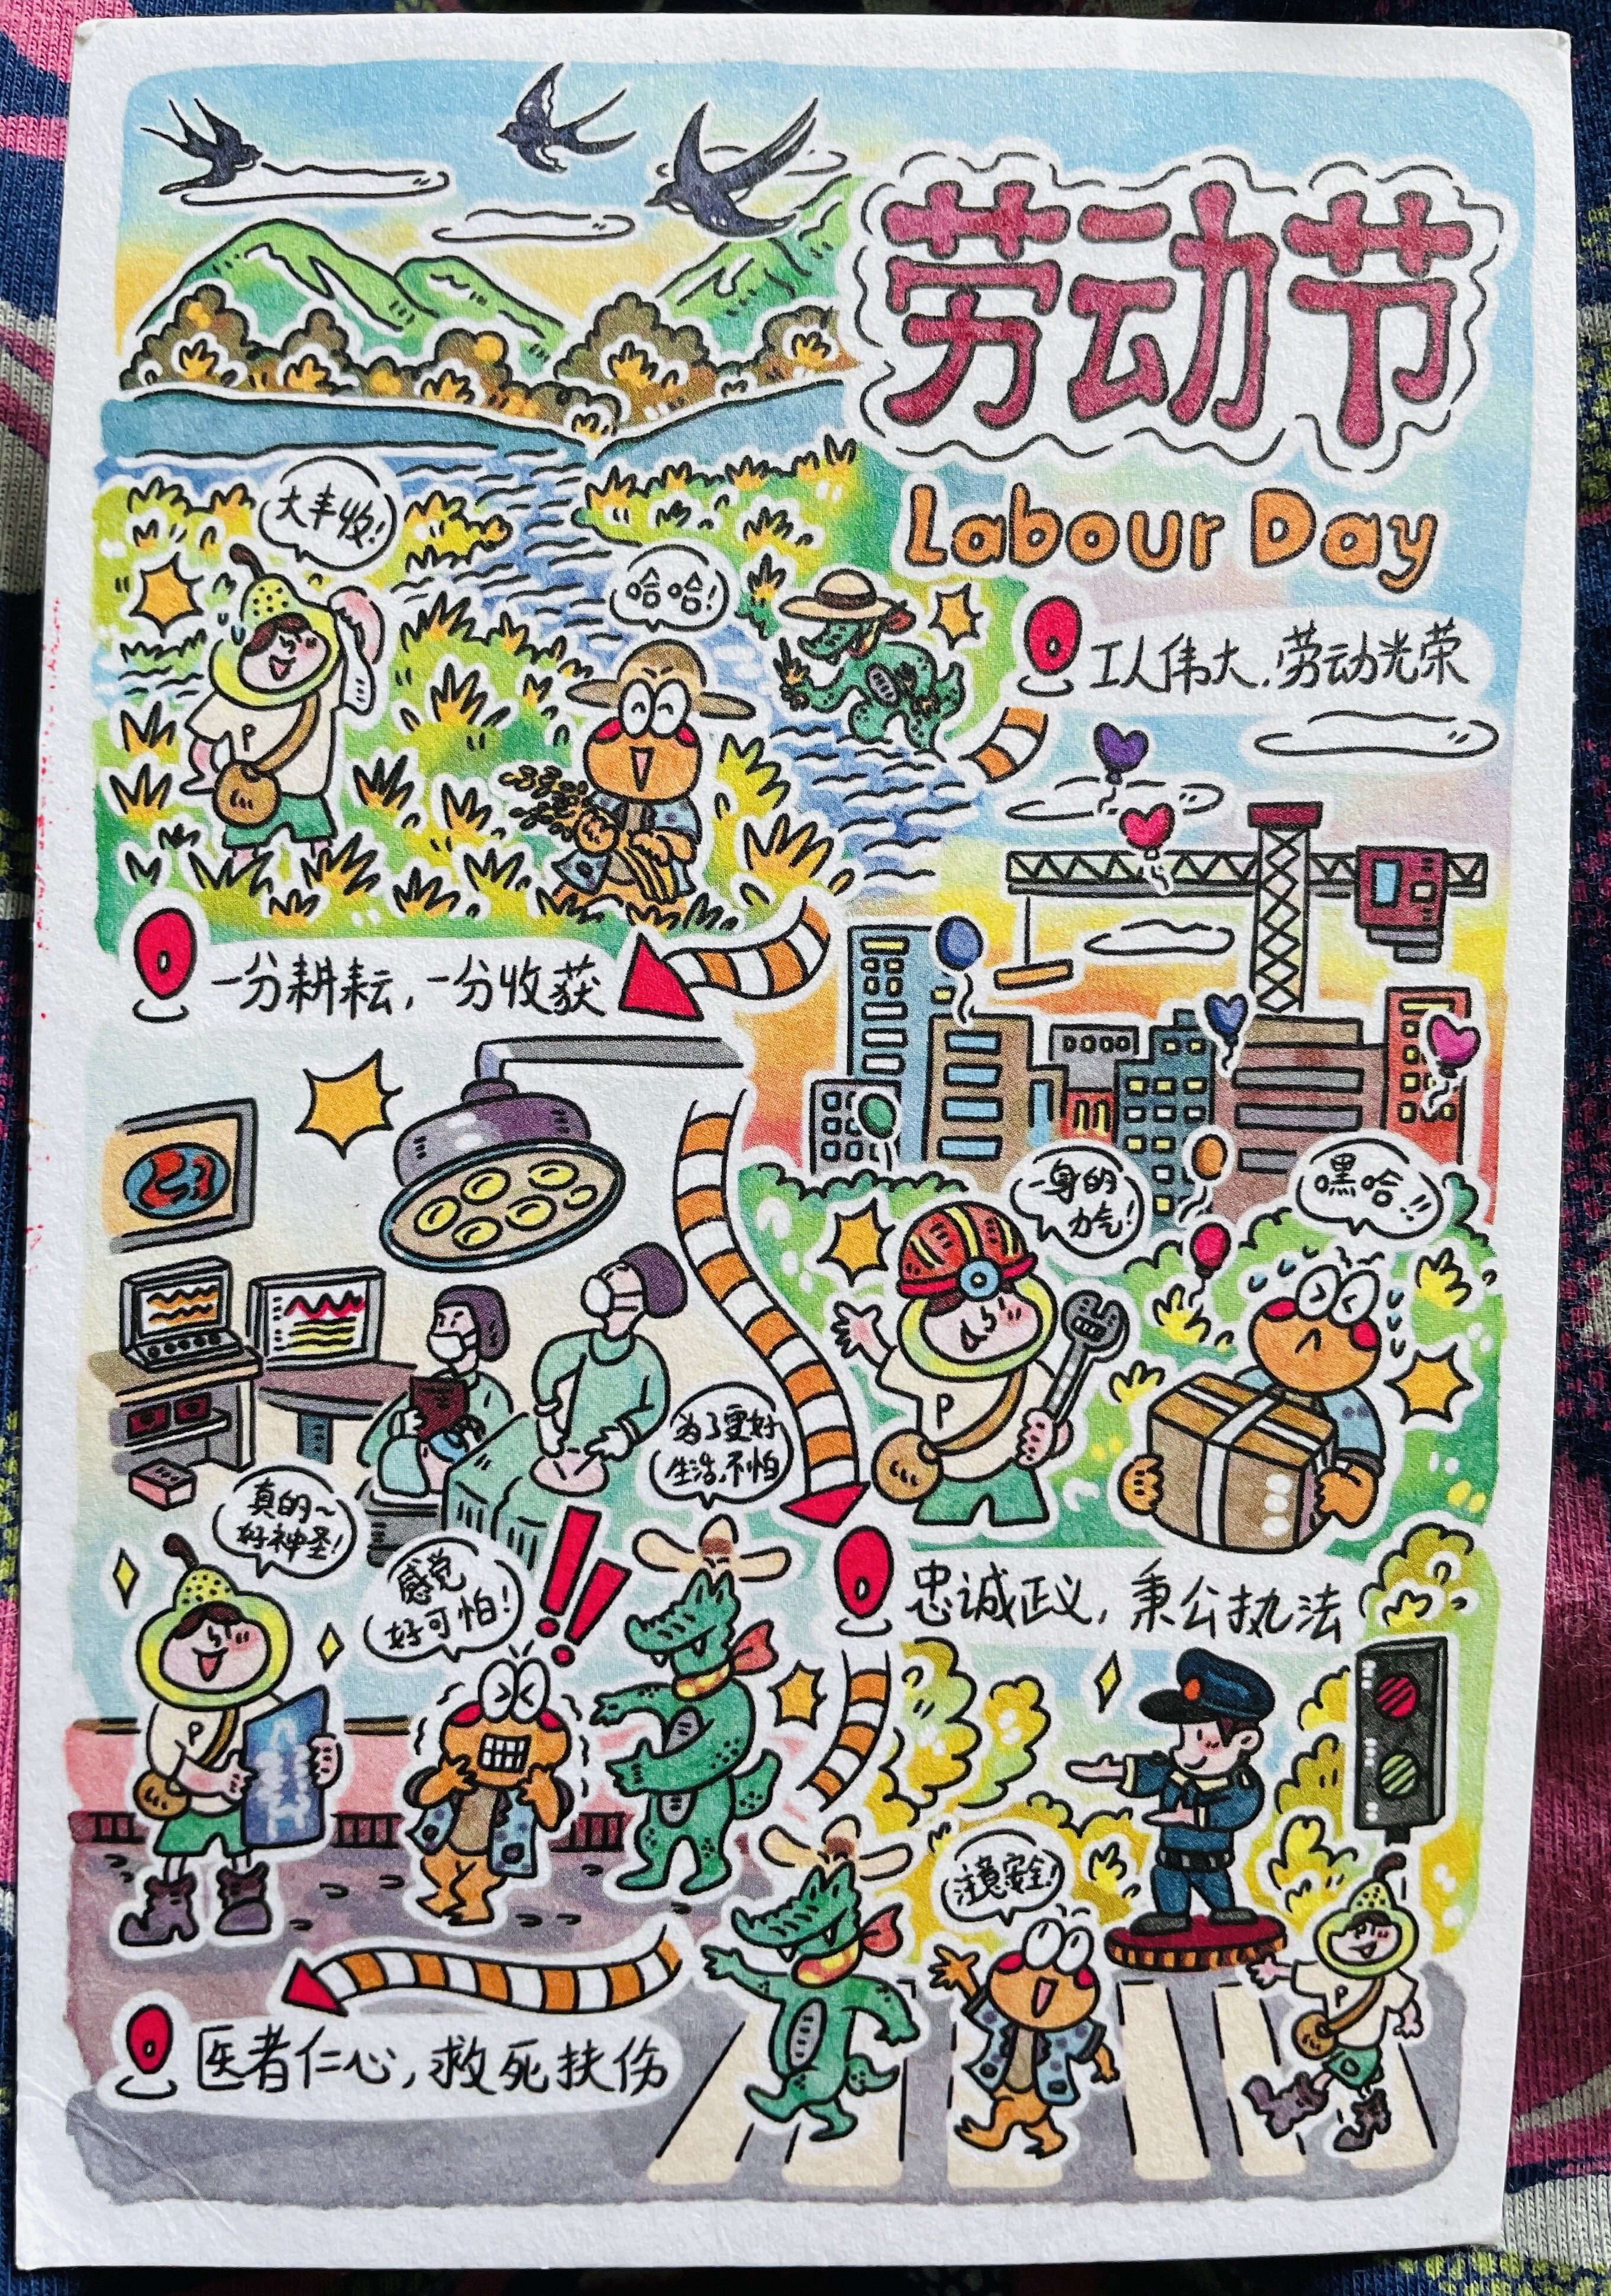 劳动节
Labour Day
大丰收!
哈哈!
工人伟大,劳动光荣
P
一分耕耘,一分收获
一身的
力气!
嘿哈!!
P
为了更好
生活,不怕
真的~
好神圣!
感觉
好可怕!
!!
忠诚正义,秉公执法
P
注意安全!
P
医者仁心,救死扶伤